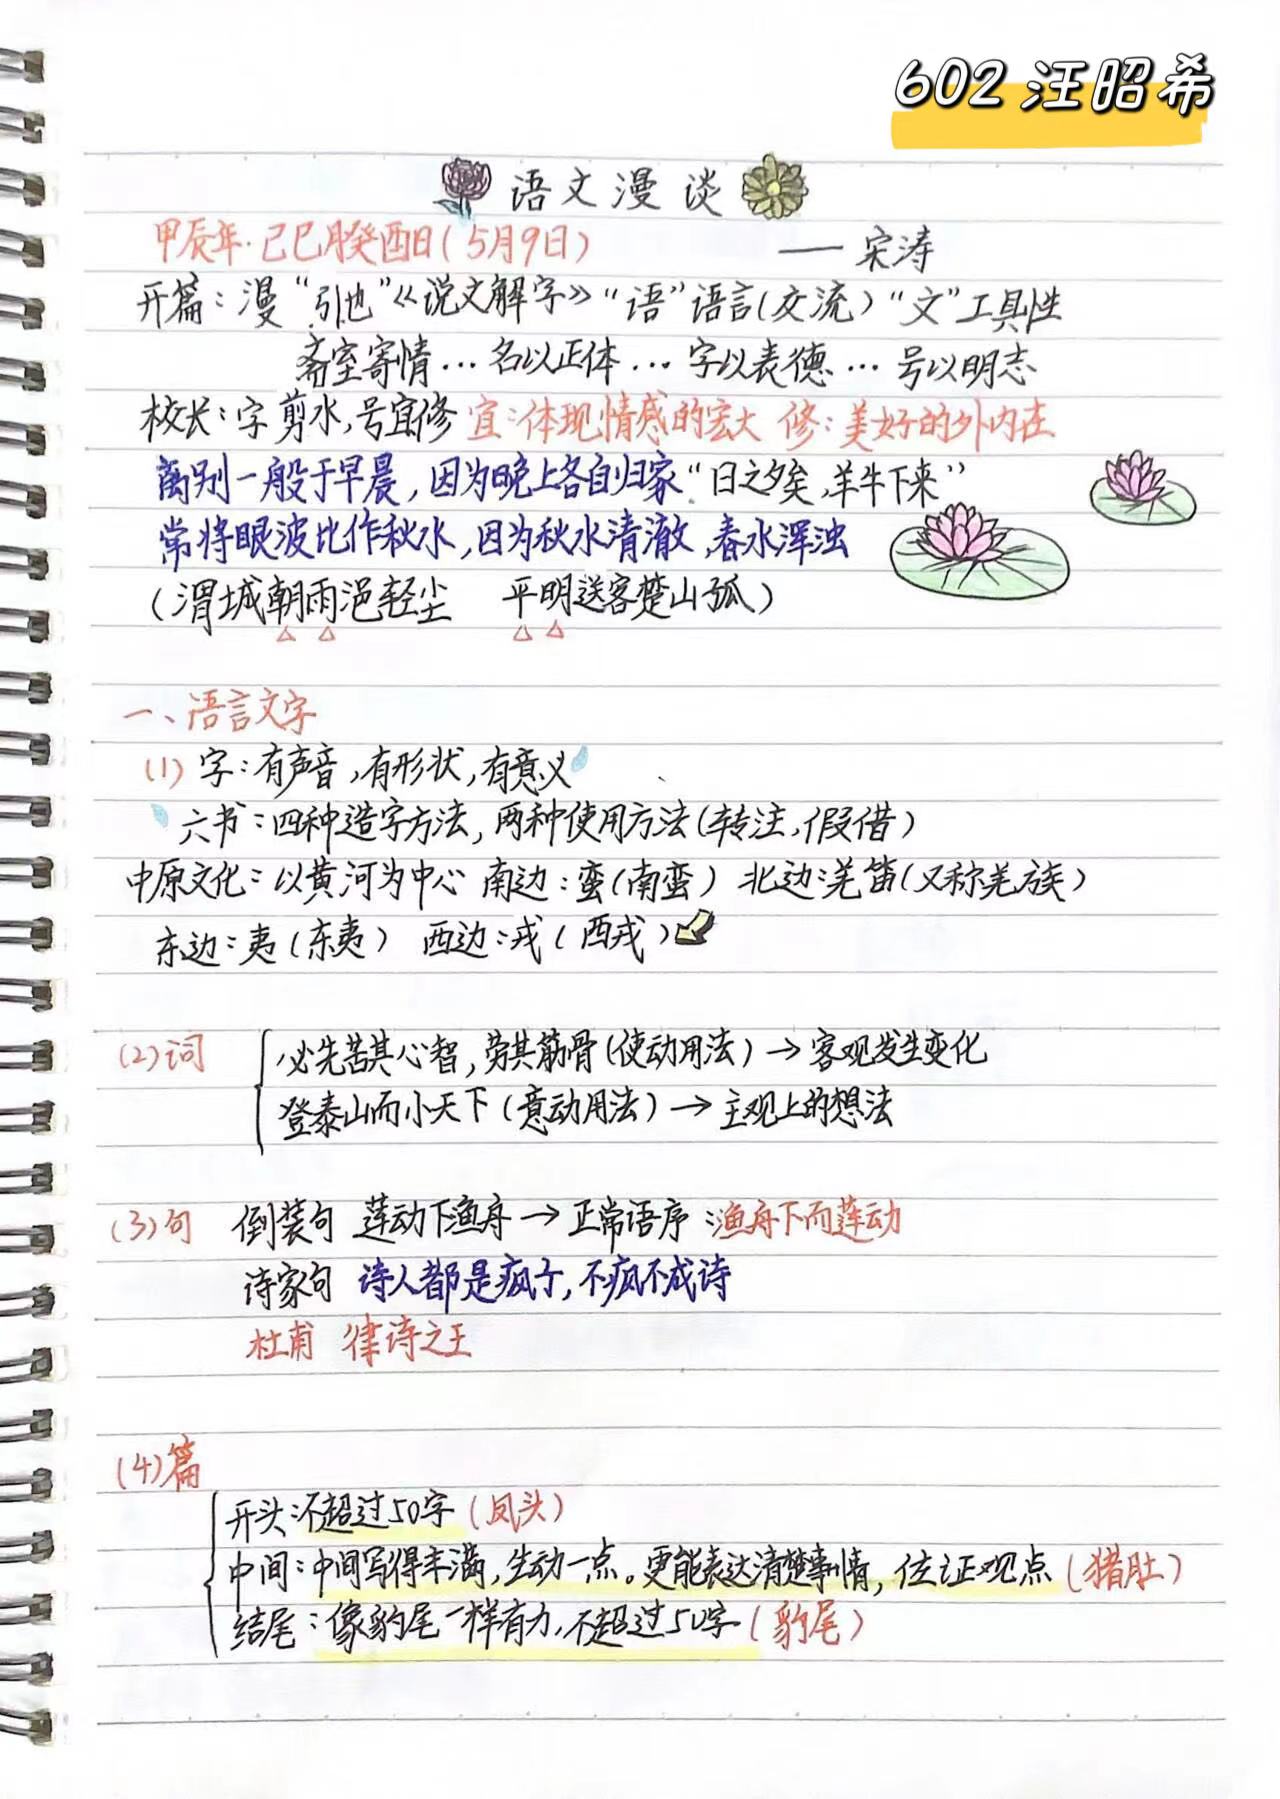 602 汪昭希
语文漫谈
甲辰年·己巳月癸酉日(5月9日) —— 宋涛
开篇：漫“引也”《说文解字》“语”语言(交流)“文”工具性
斋室寄情…名以正体…字以表德…号以明志
校长：字剪水,号宜修 宜:体现情感的宏大 修:美好的外内在
离别一般于早晨,因为晚上各自归家“日之夕矣,羊牛下来”
常将眼波比作秋水,因为秋水清澈,春水浑浊
(渭城朝雨浥轻尘 平明送客楚山孤)
一、语言文字
(1)字:有声音,有形状,有意义
六书:四种造字方法,两种使用方法(转注,假借)
中原文化:以黄河为中心 南边:蛮(南蛮) 北边:羌笛(又称羌族)
东边:夷(东夷) 西边:戎(西戎)
(2)词 必先苦其心智,劳其筋骨(使动用法)→客观发生变化
登泰山而小天下(意动用法)→主观上的想法
(3)句 倒装句 莲动下渔舟→正常语序:渔舟下而莲动
诗家句 诗人都是疯子,不疯不成诗
杜甫 律诗之王
(4)篇
开头:不超过50字(凤头)
中间:中间写得丰满,生动一点。更能表达清楚事情,佐证观点(猪肚)
结尾:像豹尾一样有力,不超过50字(豹尾)